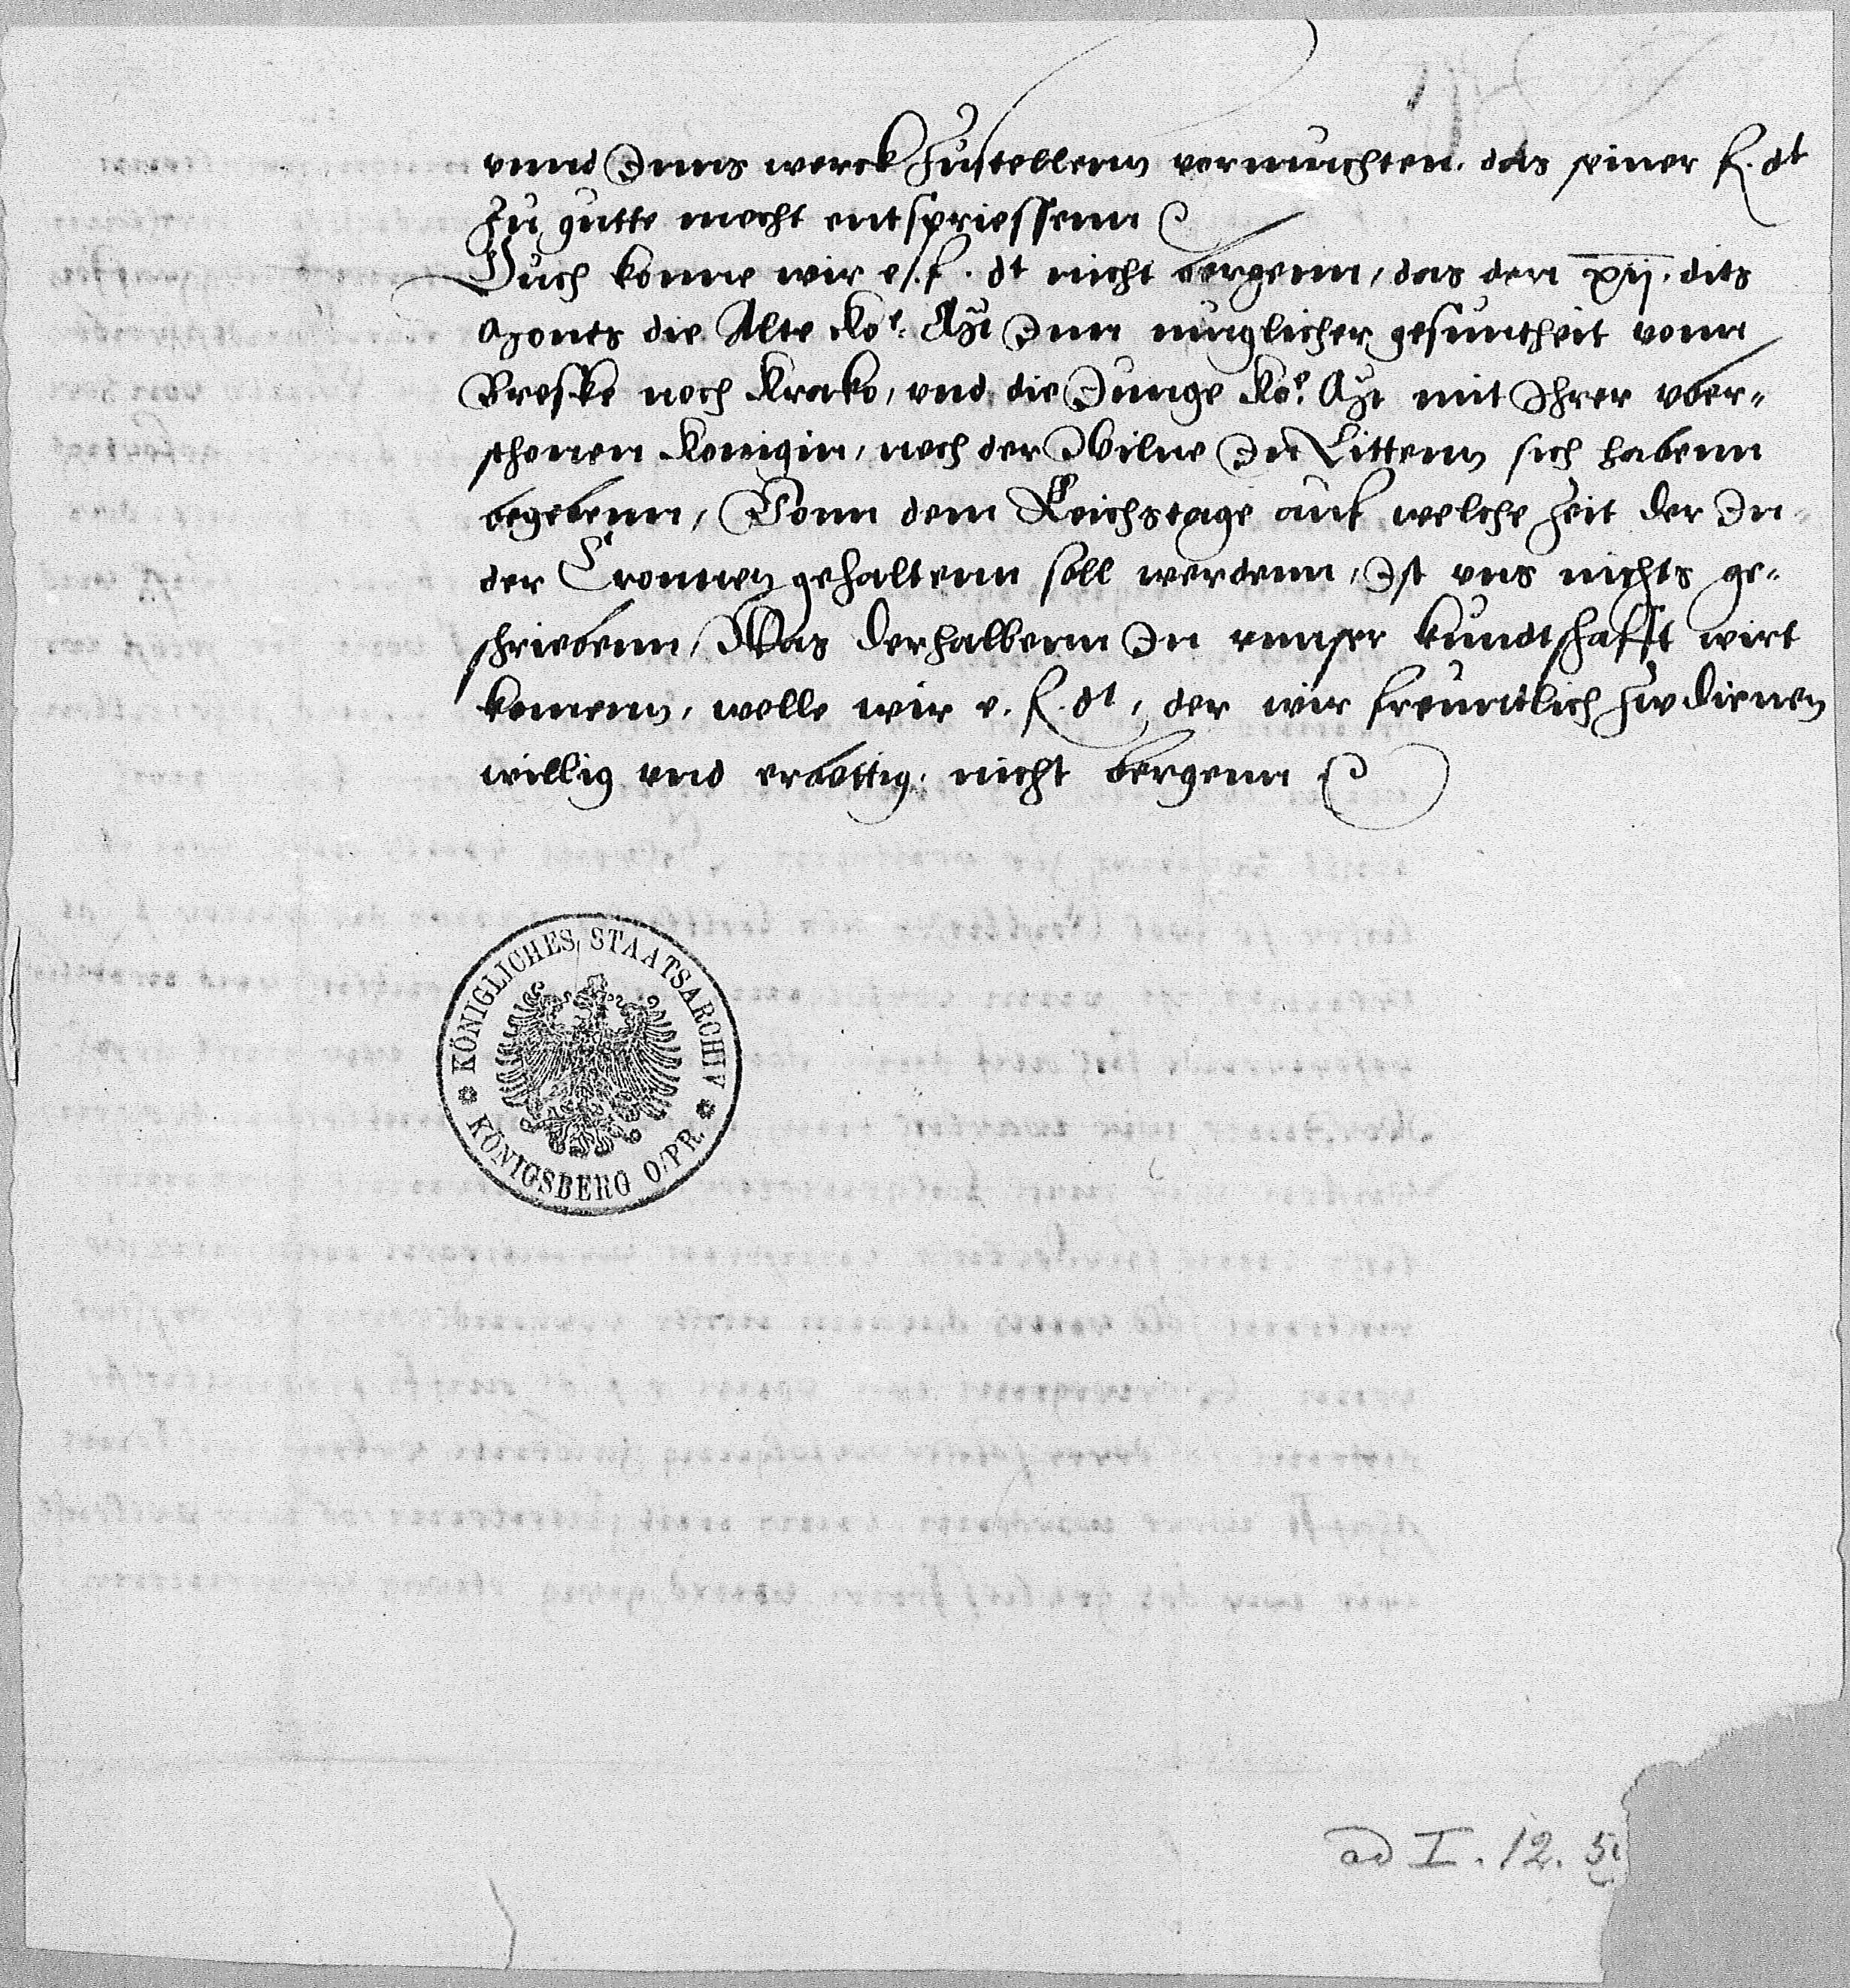 vnnd Inns werck zustellenn vermuchten. das seiner f. dt
zu gutte mocht entspriessenn
Auch konne wir e. f. dt nicht bergenn, das den xij. dits
Monts die Alte Ko: Mt Inn muglicher gesuntheit vonn
Breske noch Krako, vnd die Junge Ko: Mt mit Ihrer vber-
schonen Konigin, noch der Wilne In Littenn sich habenn
begebenn, Vonn dem Reichstage auf welche zeit der In
der Cronnen gehaltenn soll werdenn, Ist vns nichts ge-
schriebenn, Was derhalbenn In vnnser kundtschafft wirt
komenn, wolle wir e. f. dt, der wir freuntlich zw dienen
willig vnd erbottig, nicht bergenn
KÖNIGLICHES STAATSARCHIV
KÖNIGSBERG O/PR.
ad I. 12. 5